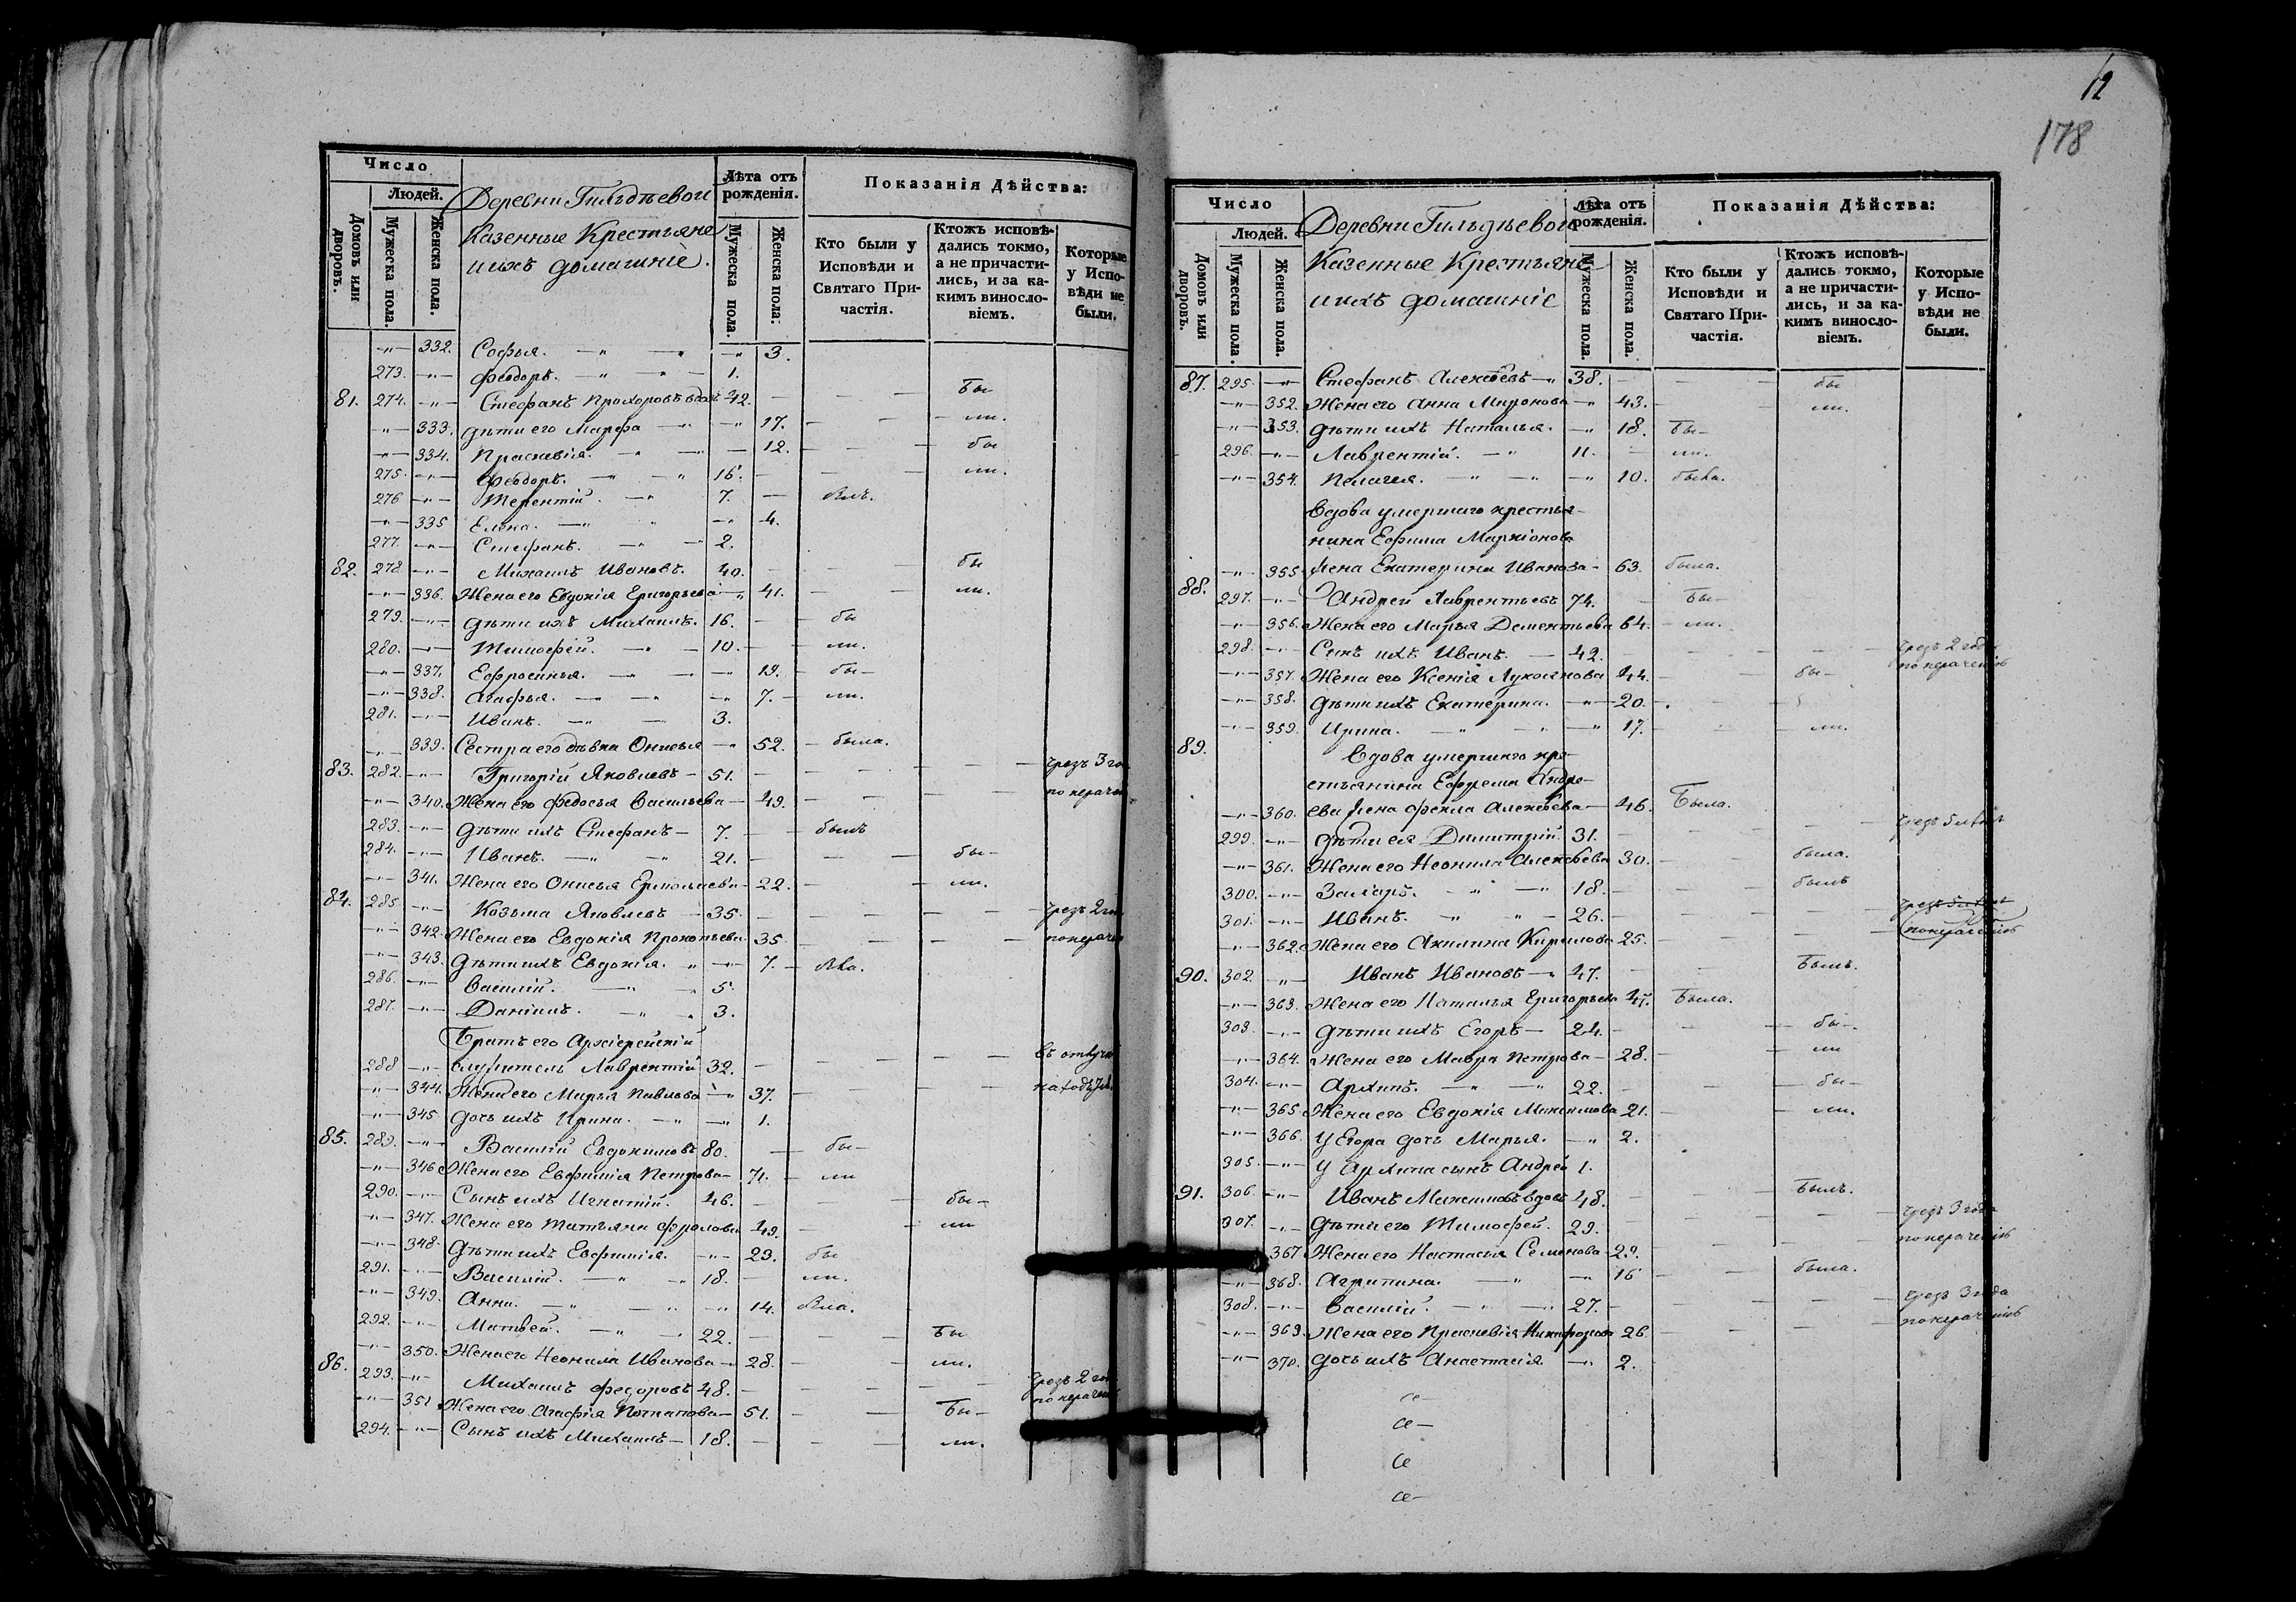 12
178
Число
Людей.
Домовъ или дворовъ.
Мужеска пола.
Женска пола.
Деревни Гильдѣевой
Казенные Крестьяне
и ихъ домашніе.
Лѣта отъ рожденія.
Мужеска пола.
Женска пола.
Показанія Дѣйства:
Кто были у Исповѣди и Святаго Причастія.
Ктожъ исповѣдались токмо, а не причастились, и за какимъ винословіемъ.
Которые у Исповѣди не были.
332. Софья. 3.
273. Феодоръ. 1.
81. 274. Стефанъ Прохоровъ вдовъ 42. бы
333. Дѣти его Марфа 17. ли.
334. Праскевія. 12. бы
275. Феодоръ. 16. ли.
276 Терентій. 7. былъ.
335 Елена. 4.
277. Стефанъ. 2.
82. 278 Михаилъ Ивановъ. 40. бы
336. Жена его Евдокія Григорьева 41. ли.
279. Дѣти ихъ Михаилъ. 16. бы
280. Тимофѣй. 10. ли.
337. Ефросинья. 19. бы
338. Агафья. 7. ли.
281. Иванъ. 3.
339. Сестра его дѣвка Онисья 52. была.
83. 282. Григорій Яковлевъ 51. чрезъ 3 го
340. Жена его Федосья Васильева 49. по нераче
283. Дѣти ихъ Стефанъ 7. былъ
284. Иванъ. 21. бы
341. Жена его Онисья Ермолаева 22. ли.
84. 285 Козьма Яковлевъ 35. чрезъ 2 го
342. Жена его Евдокія Прокопьева 35 по нераче
343. Дѣти ихъ Евдокія. 7. была.
286. Василій. 5.
287. Даніилъ. 3.
Братъ его Архіерейскій
288 служитель Лаврентій 32. въ отлуч
344. Жена его Марья Павлова 37. находятся
345 Дочь ихъ Ирина. 1.
85. 289. Василій Евдокимовъ 80. бы
346 Жена его Евфимія Петрова 71. ли
290. Сынъ ихъ Игнатій. 46. бы
347. Жена его Татьяна Фролова 49. ли
348. Дѣти ихъ Евфимія. 23. бы
291. Василій. 18. ли.
349. Анна. 14. была.
292. Матвей. 22. бы
350. Жена его Неонила Иванова 28. ли.
86. 293. Михаилъ Федоровъ 48. чрезъ 2 го
351 Жена его Агафія Потапова 51. бы по нераче
294. Сынъ ихъ Михаилъ 18. ли.
Число
Людей.
Домовъ или дворовъ.
Мужеска пола.
Женска пола.
Деревни Гильдѣевой
Казенные Крестьяне
и ихъ домашніе
Лѣта отъ рожденія.
Мужеска пола.
Женска пола.
Показанія Дѣйства:
Кто были у Исповѣди и Святаго Причастія.
Ктожъ исповѣдались токмо, а не причастились, и за какимъ винословіемъ.
Которые у Исповѣди не были.
87. 295. Стефанъ Алексѣевъ 38. бы
352. Жена его Анна Миронова 43. ли.
353. Дѣти ихъ Наталья. 18. бы
296. Лаврентій. 11. ли.
354. Пелагея. 10. была.
Вдова умершаго крестья-
нина Ефима Маркіонова
355 жена Екатерина Иванова 63. была.
88. 297. Андрей Лаврентьевъ 74. бы
356. Жена его Марья Дементьева 64. ли.
298. Сынъ ихъ Иванъ. 42. чрезъ 2 года
357. Жена его Ксенія Лукоянова 44. бы по нераченію
358. Дѣти ихъ Екатерина. 20.
359. Ирина. 17. ли.
89. Вдова умершаго кре-
стьянина Ефрема Андре-
360. ева жена Фекла Алексѣева 46. была.
299. Дѣти ея Димитрій. 31. чрезъ 5 лѣтъ
361. Жена его Неонила Алексѣева 30. была.
300. Захаръ. 18. былъ
301. Иванъ. 26. чрезъ 5 лѣтъ
362. Жена его Акилина Кирилова 25. по нераченію
90. 302. Иванъ Ивановъ 47. былъ.
363. Жена его Наталья Григорьева 47. была.
303. Дѣти ихъ Егоръ 24. бы
364. Жена его Мавра Петрова 28. ли
304. Архипъ. 22. бы
365. Жена его Евдокія Максимова 21. ли.
366. У Егора дочь Марья. 2.
305. У Архипа сынъ Андрей 1.
91. 306. Иванъ Максимовъ вдовъ 48. былъ.
307. Дѣти его Тимофей. 29. чрезъ 3 года
367. Жена его Настасія Семенова 29. по нераченію
368. Агрипина. 16 была.
308. Василій. 27. чрезъ 3 года
369. Жена его Праскевія Никифорова 26. по нераченію
370. Дочь ихъ Анастасія. 2.